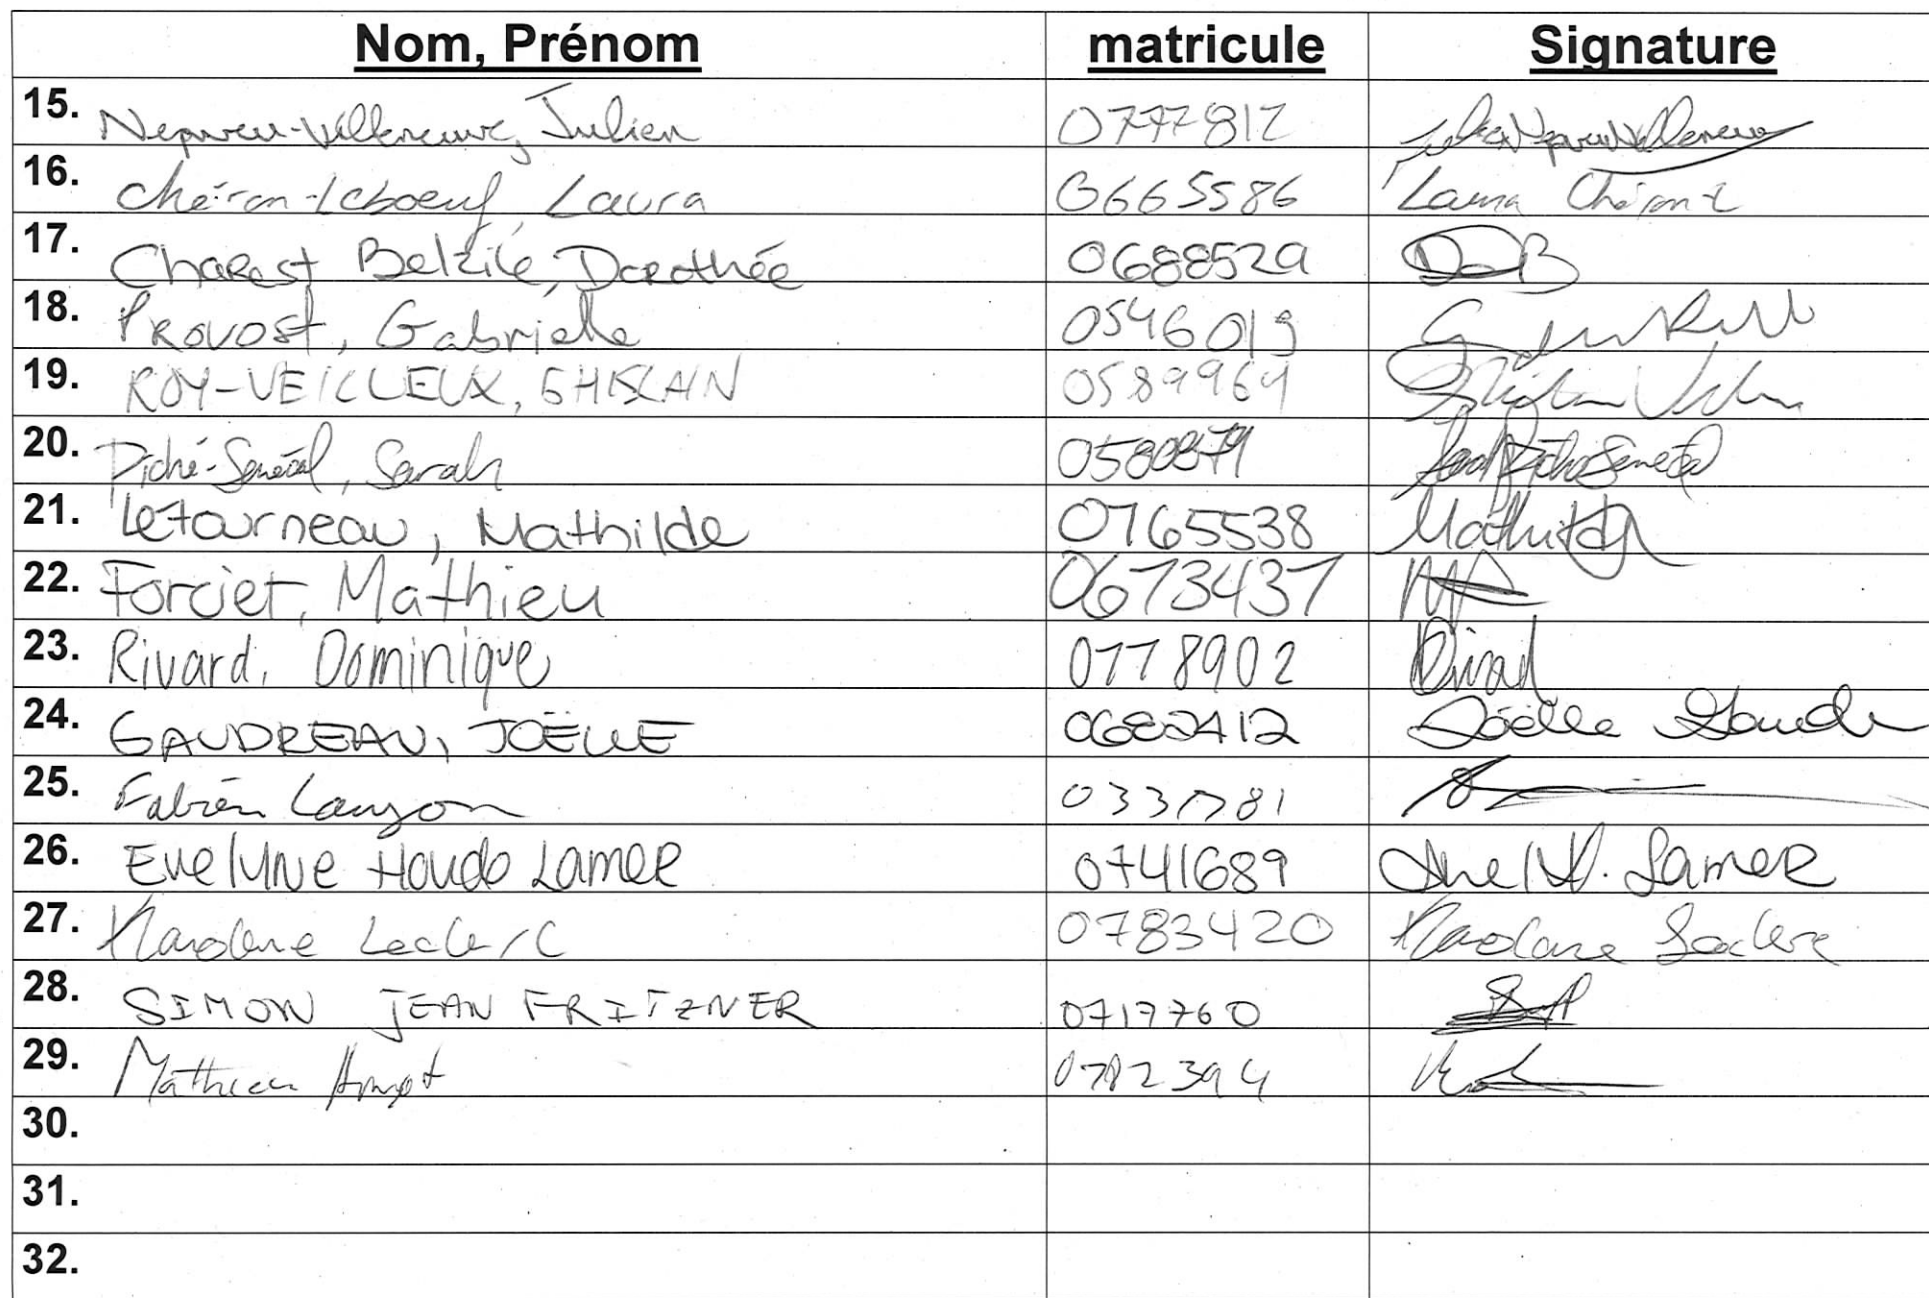 Nom, Prénom matricule Signature
15. Nepveu-Villeneuve, Julien 0777812
16. Chéron-Leboeuf, Laura 0665586 Laura Chéron-L
17. Charest Belzile, Dorothée 0688529 DCB
18. Provost, Gabrielle 0546019
19. ROY-VEILLEUX, GHISLAIN 0589969
20. Piché-Senécal, Sarah
21. Letourneau, Mathilde 0765538
22. Forciet, Mathieu 0673437
23. Rivard, Dominique 0778902 Rivard
24. GAUDREAU, JOËLLE 0682412 Joëlle
25. Fabien Lauzon
26. Evelyne Houde Lamer 0741689 Lamer
27. Karolane Leclerc 0783420 Karolane Leclerc
28. SIMON JEAN FRITZNER 0717760
29. Mathieu
30.
31.
32.